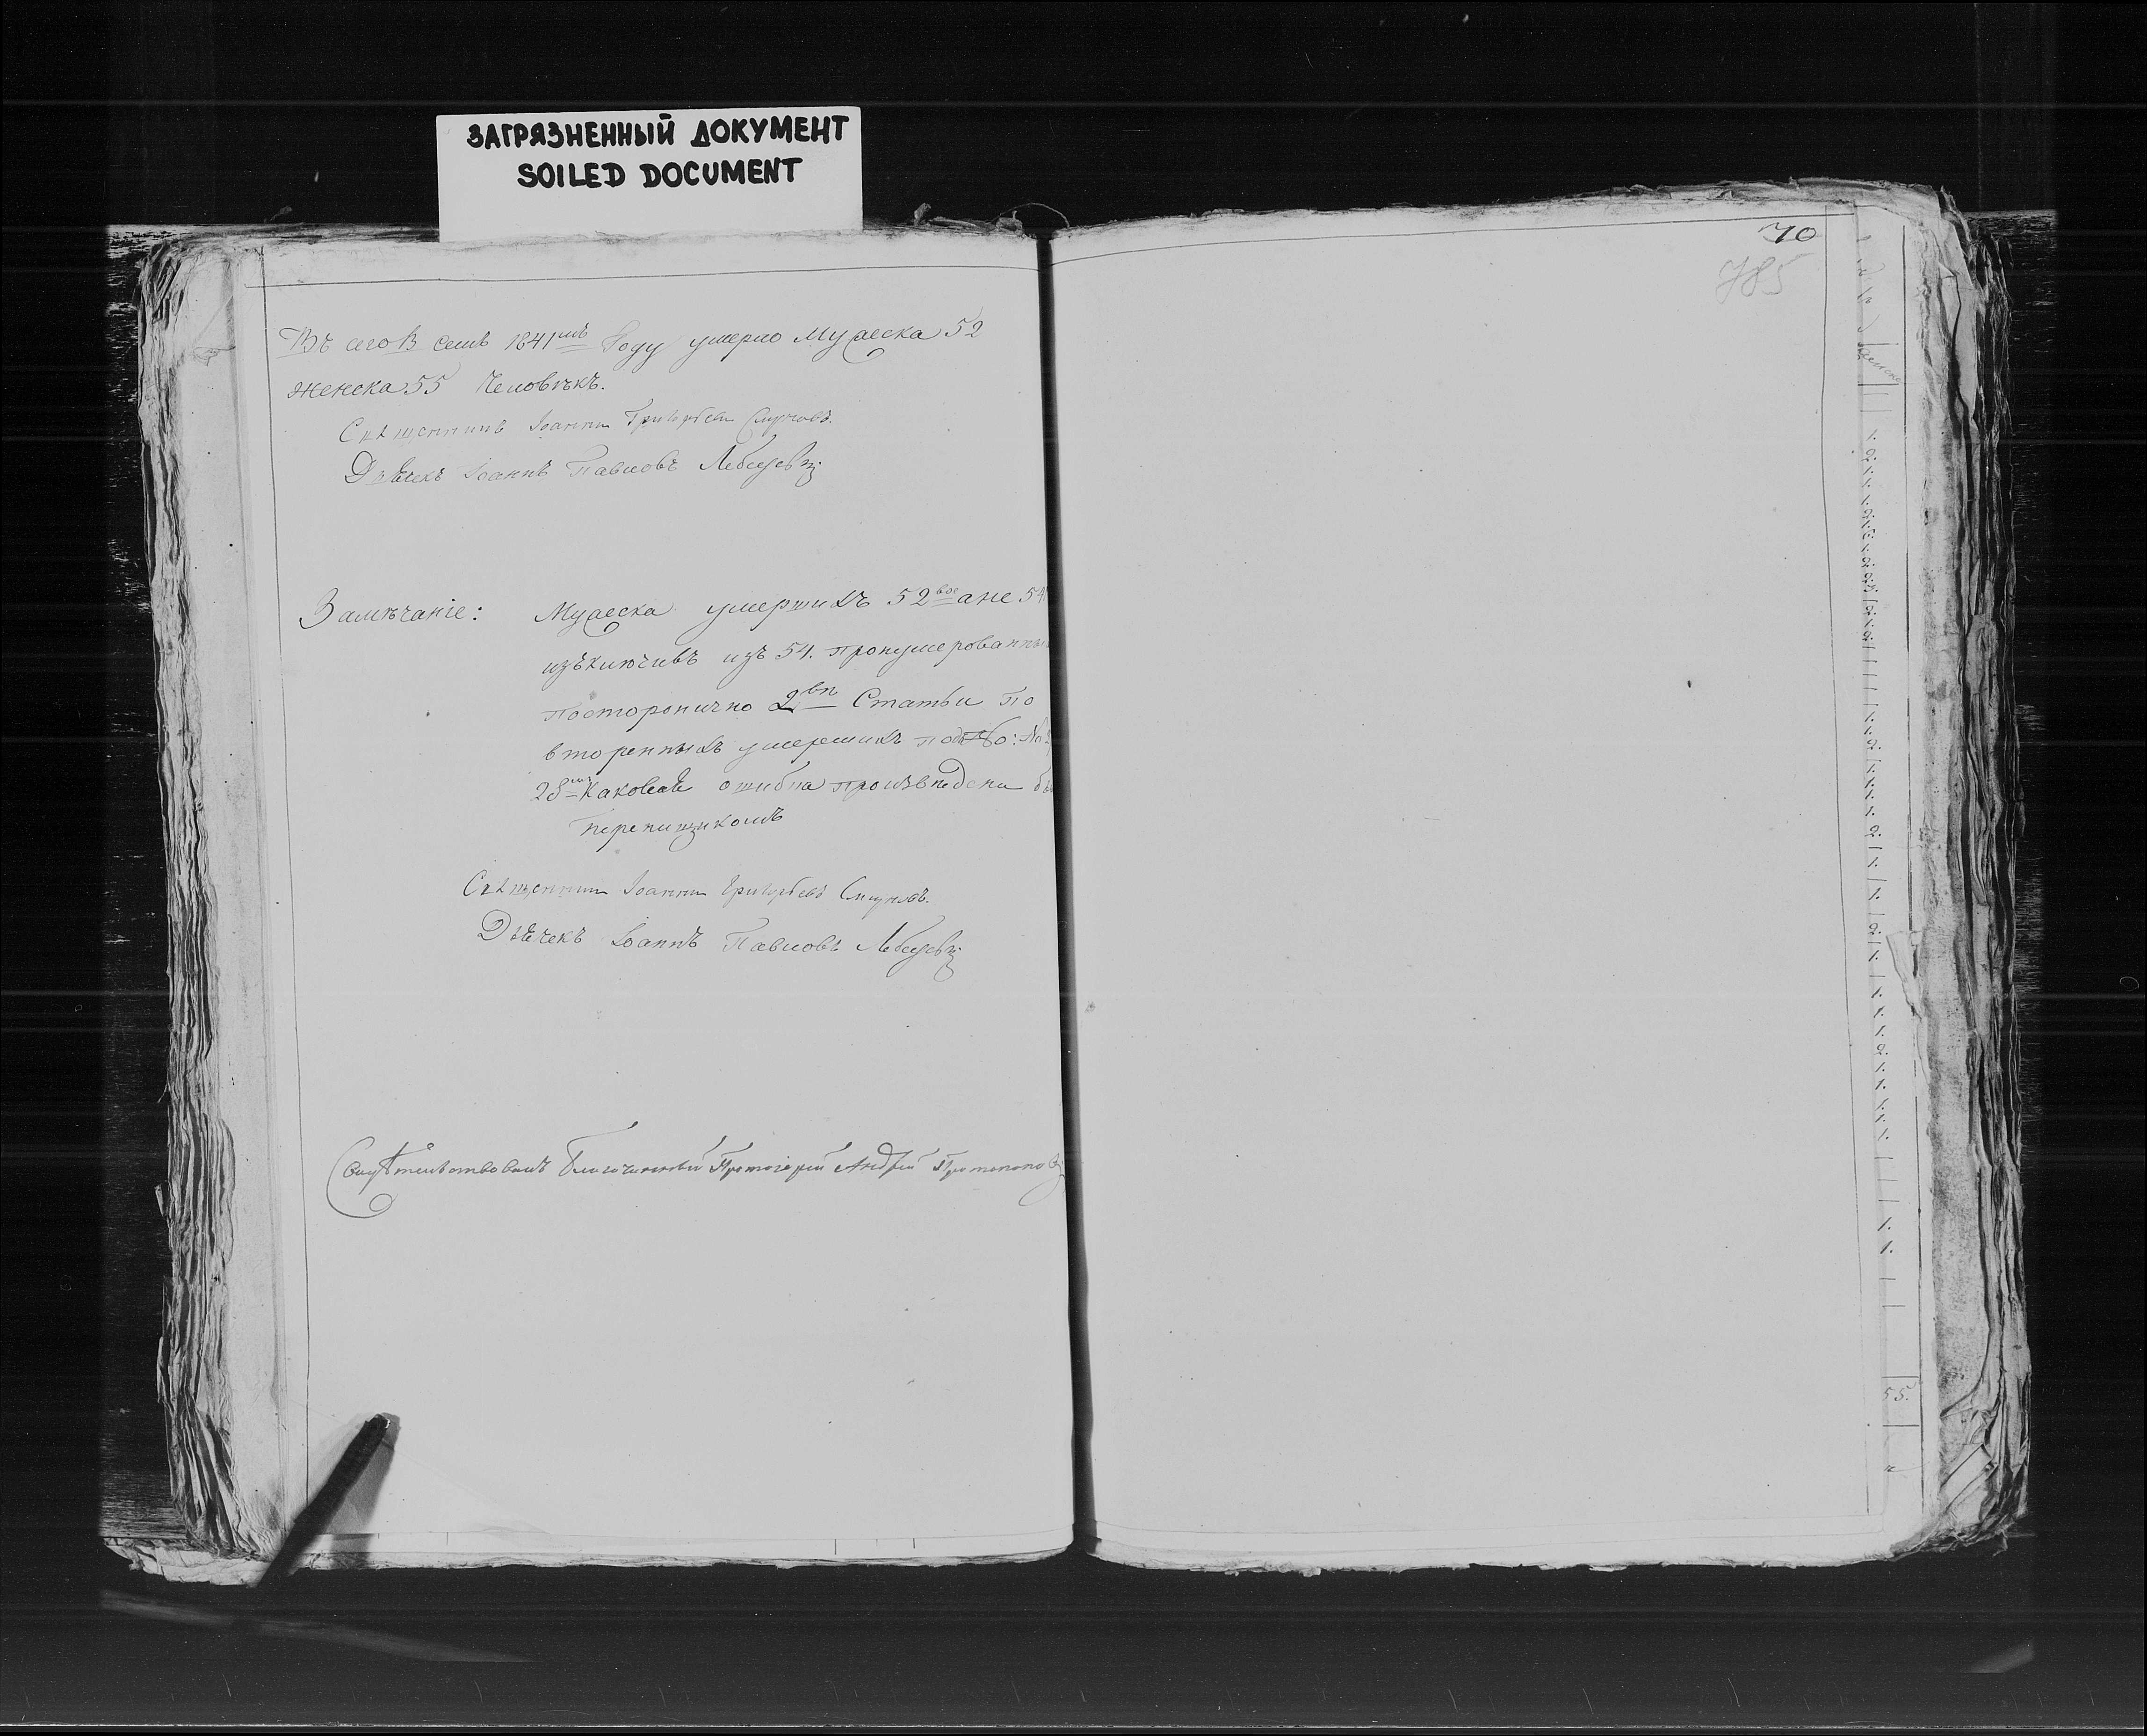 ЗАГРЯЗНЕННЫЙ ДОКУМЕНТ
SOILED DOCUMENT
Въ семъ 1841мъ Году умерло Мужеска 52
женска 55 Человѣкъ.
Священникъ Іоаннъ Григорьевъ
Дьячекъ Іоаннъ Павловъ Лебедевъ
Замѣчаніе: Мужеска умершихъ 52вое а не 54
изъключивъ изъ 54. пронумерованны
посторонично 2вп Статьи по
вторенныхъ умершихъ
28мъ Каковая ошибка произведена
перепищикомъ
Священникъ Іоаннъ Григорьевъ
Дьячекъ Іоаннъ Павловъ Лебедевъ
Свидѣтельствовалъ Благочинный Протоіерей Андрей Протопоповъ
70
785
55.